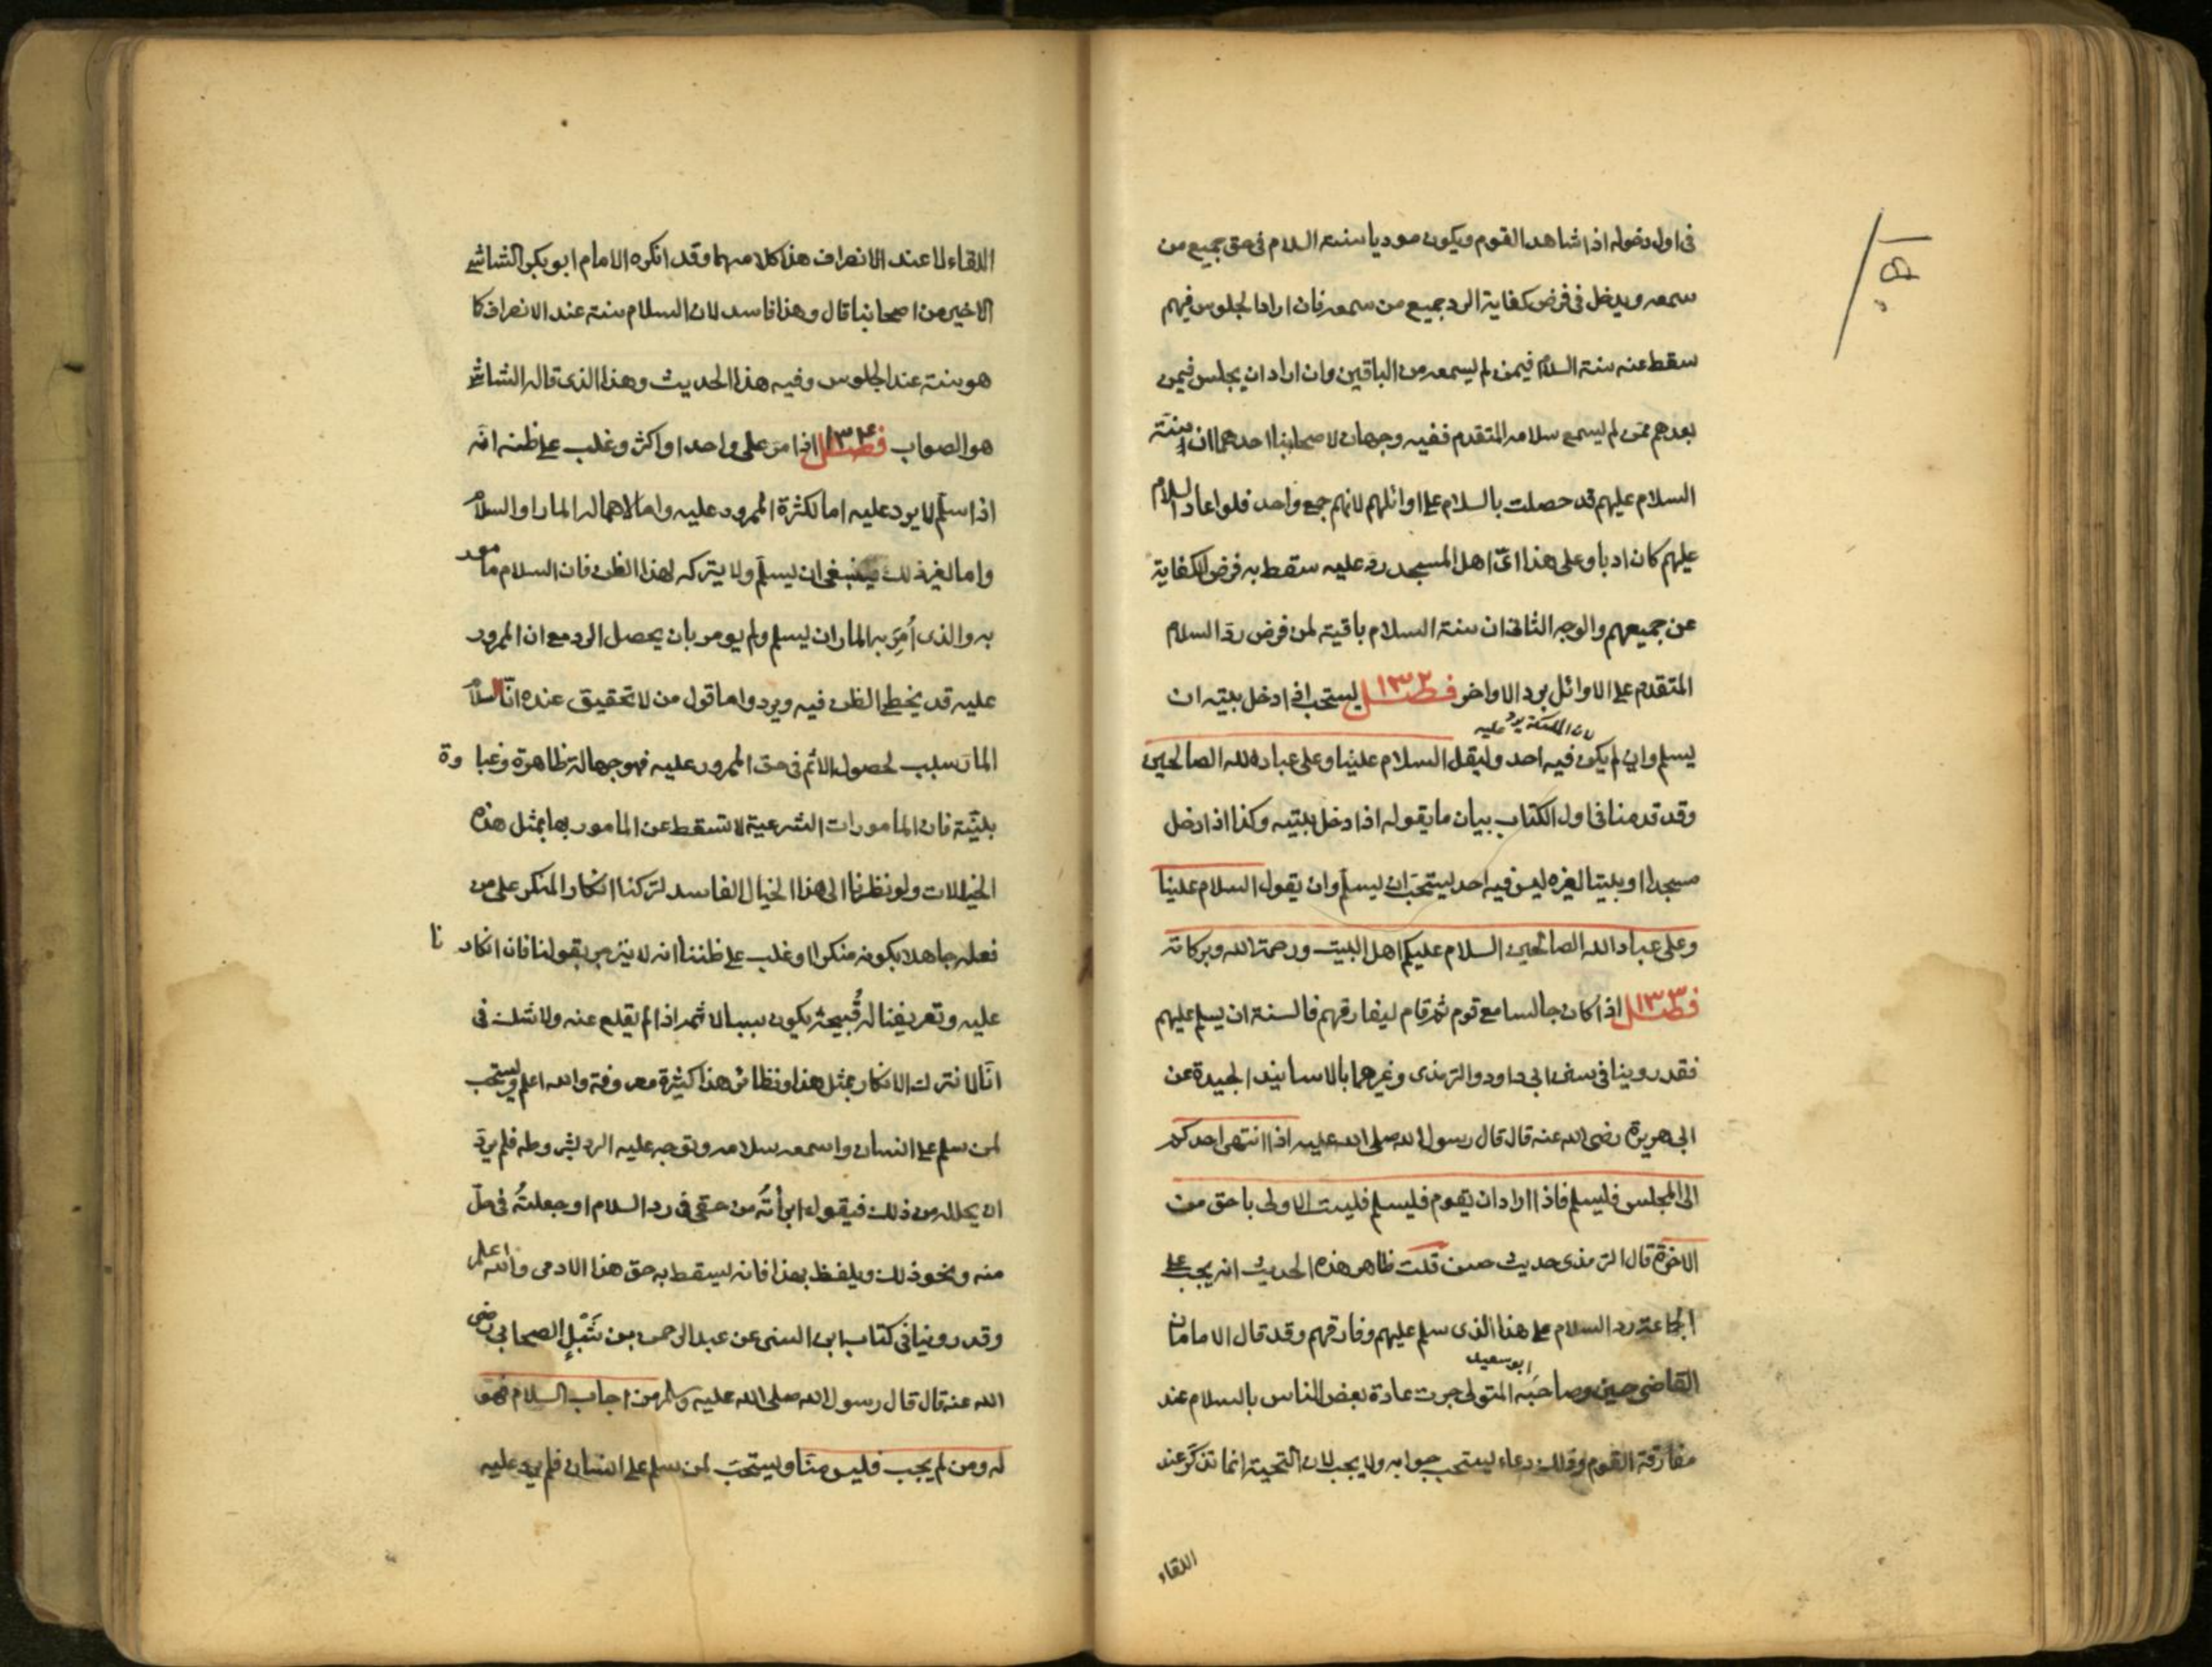 فى اول دخوله اذا شاهد القوم ويكون موديا سنة السلام فى حق جميع من
سمعه ويدخل فى فرض كفاية الرد جميع من سمعه فان اراد الجلوس فيهم
سقط عنه سنة السلام فيمن لم يسمعه من الباقين وان اراد ان يجلس فيمن
بعدهم ممن لم يسمع سلامه المتقدم ففيه وجهان لاصحابنا احدهما ان سنة
السلام عليهم قد حصلت بالسلام على اوائلهم لانهم جمع واحد فلو اعاد السلام
عليهم كان ادبا وعلى هذا اى اهل المسجد رد عليه سقط به فرض الكفاية
عن جميعهم والوجه الثانى ان سنة السلام باقية لمن فرض رد السلام
المتقدم على الاوائل برد الاواخر فصل ١٣٢ يستحب اذا دخل بيته ان
لان الملئكة يرد عليه
يسلم وان لم يكن فيه احد وليقل السلام علينا وعلى عباد الله الصالحين
وقد قدمنا فى اول الكتاب بيان ما يقوله اذا دخل بيته وكذا اذا دخل
مسجدا او بيتا لغيره ليس فيه احد يستحب ان يسلم وان يقول السلام علينا
وعلى عباد الله الصالحين السلام عليكم اهل البيت ورحمة الله وبركاته
فصل ١٣٣ اذا كان جالسا مع قوم ثم قام ليفارقهم فالسنة ان يسلم عليهم
فقد روينا فى سنن ابى داود والترمذى وغيرهما بالاسانيد الجيدة عن
ابى هريرة رضى الله عنه قال قال رسول الله صلى الله عليه اذا انتهى احدكم
الى المجلس فليسلم فاذا اراد ان يقوم فليسلم فليست الاولى باحق من
الاخرة قال الترمذى حديث حسن قلت ظاهر هذه الحديث انه يجب على
الجاعة رد السلام على هذا الذى سلم عليهم وفارقهم وقد قال الامامان
ابو سعيد
القاضى حسين وصاحبه المتولى جرت عادة بعض الناس بالسلام عند
مفارقة القوم وذلك دعاء يستحب جوابه ولا يجب لان التحية انما تذكر عند
اللقاء
اللقاء لا عند الانصراف هذا كلامهما وقد انكره الامام ابو بكر الشاشى
الاخير من اصحابنا قال وهذا فاسد لان السلام سنة عند الانصراف كا
هو سنة عند الجلوس وفيه هذا الحديث وهذا الذى قاله الشاشى
هو الصواب فصل ١٣٤ اذا مر على واحد او اكثر وغلب على ظنه انه
اذا سلم لا يرد عليه اما لكثرة الممرور عليه واما لاهماله المار او السلام
واما لغير ذلك فينبغى ان يسلم ولا يتركه لهذا الظن فان السلام مامور
به والذى أمر به المار ان يسلم ولم يومر بان يحصل الرد مع ان الممرور
عليه قد يخطى الظن فيه ويرد واما قول من لا تحقيق عنده ان السلام
المار سبب لحصول الاثم فى حق الممرور عليه فهو جهالة ظاهرة وغبا وة
بينة فان المامورات الشرعية لا تسقط عن المامور بها بمثل هذه
الخيالات ولو نظرنا الى هذا الخيال الفاسد لتركنا انكار المنكر على من
فعله جاهلا بكونه منكرا وغلب على ظننا انه لا ينزجر بقولنا فان انكار نا
عليه وتعريفنا له قبيحه يكون سببا لاثمه اذا لم يقلع عنه ولا شك فى
انا لا نترك الانكار بمثل هذا ونظائر هذا كثيرة معروفة والله اعلم ويستحب
لمن سلم على انسان واسمعه سلامه وتوجه عليه الرد بشروطه فلم يرد
ان يحلله من ذلك فيقول ابرأته من حقى فى رد السلام او جعلته فى حل
منه ونحو ذلك ويلفظ بهذا فانه يسقط به حق هذا الادمى والله اعلم
وقد روينا فى كتاب ابن السنى عن عبد الرحمن بن شبل الصحابى رضى
الله عنه قال قال رسول الله صلى الله عليه وسلم من اجاب السلام فهو
له ومن لم يجب فليس منا ويستحب لمن سلم على انسان فلم يرد عليه